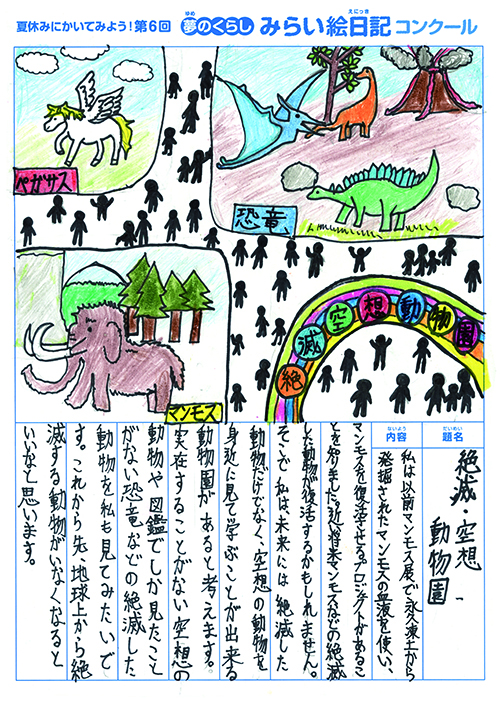 夏休みにかいてみよう!第6回 夢のくらし みらい絵日記コンクール
ゆめ
えにっき
ペガサス
恐竜
マンモス
絶滅空想動物園
だいめい
題名
絶滅・空想
動物園
ないよう
内容
私は以前マンモス展で、永久凍土から
発掘されたマンモスの血液を使い、
マンモスを復活させるプロジェクトがあるこ
とを知りました。近い将来マンモスなどの絶滅
した動物が復活するかもしれません。
そこで私は未来には絶滅した
動物だけでなく、空想の動物を
身近に見て学ぶことが出来る
動物園があると考えます。
実在することがない空想の
動物や図鑑でしか見たこと
がない恐竜などの絶滅した
動物を私も見てみたいで
す。これから先、地球上から絶
滅する動物がいなくなると
いいなと思います。